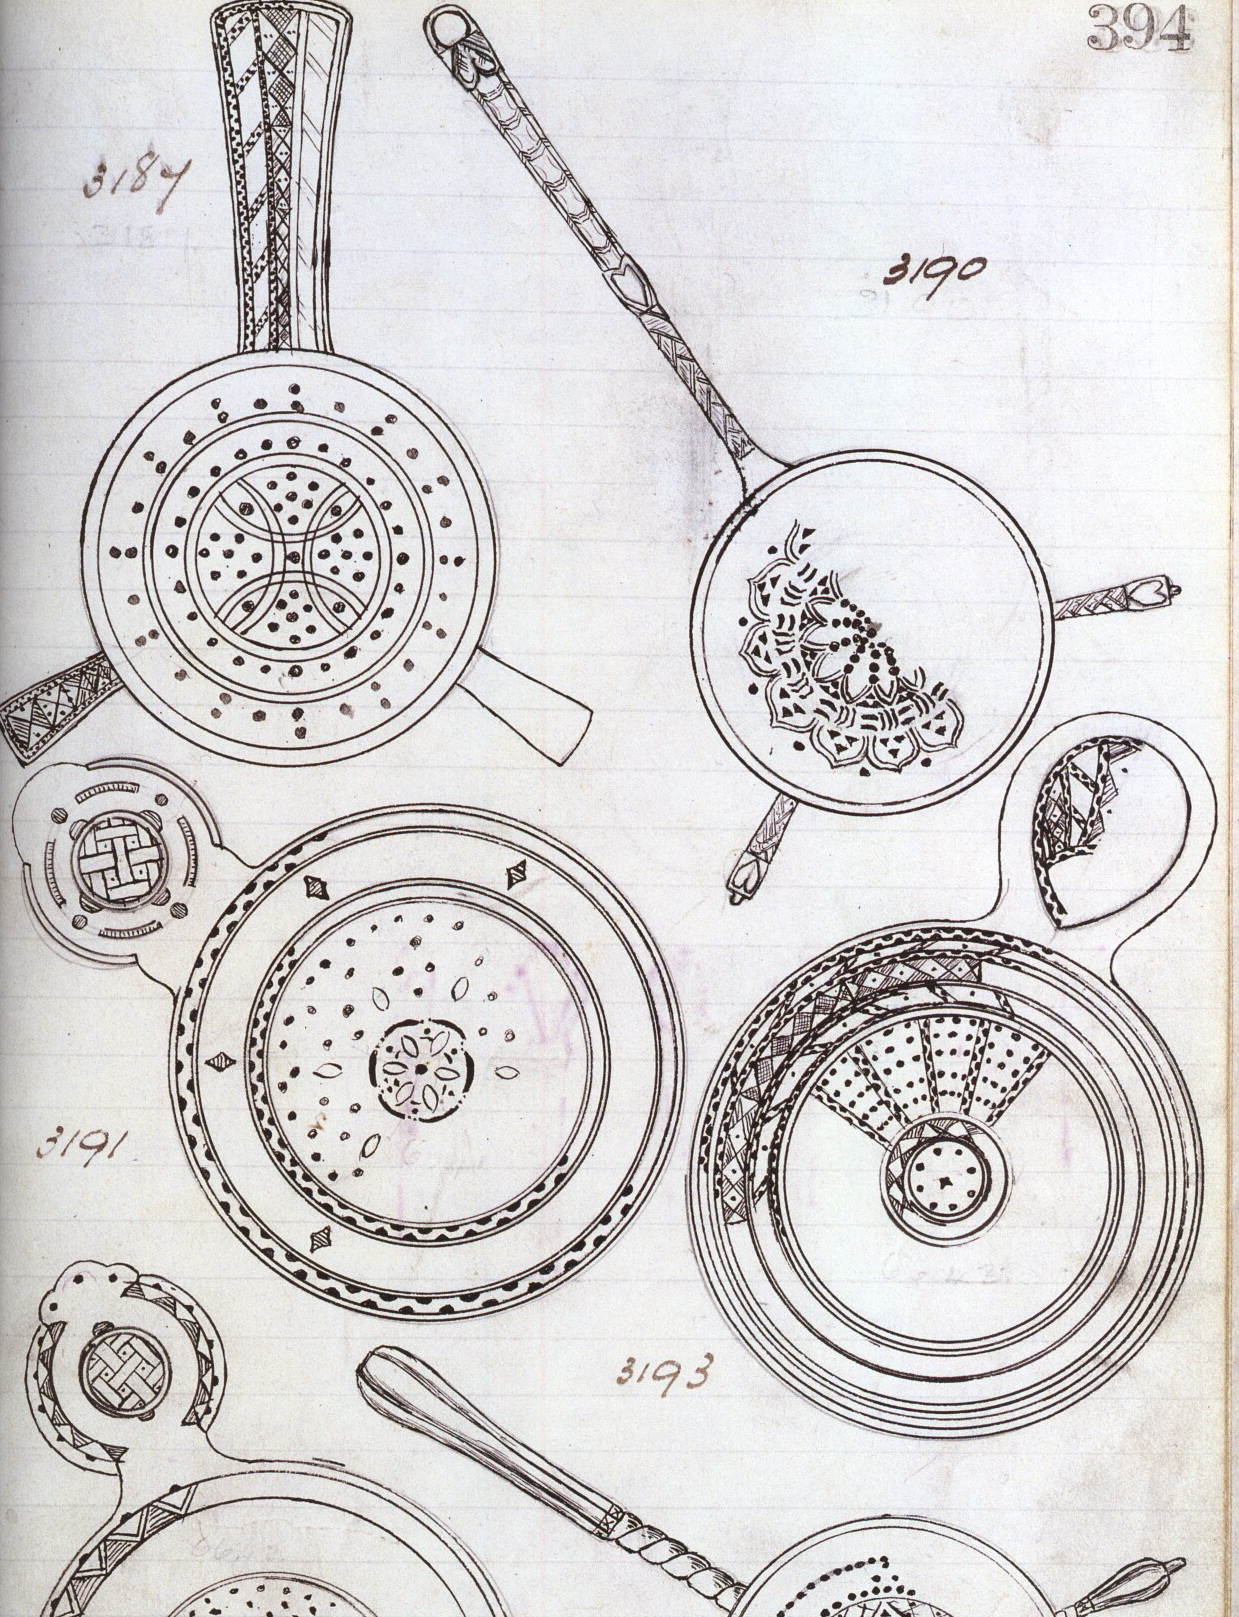 394
3187
3190
3191
3193